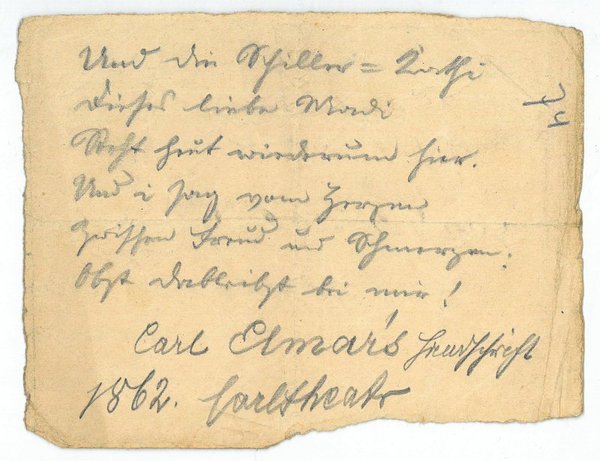 Und die Schiller=Kathi
Dieses liebe Madi
Steht heut wiederum hier.
Und i sag vom Herzen
Zwischen Freud und Schmerzen:
Obst dableibst bei mir!
Carl Elmar's Handschrift
1862. Carltheater